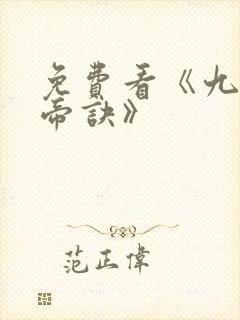 免費看《九
帝訣》
范正偉